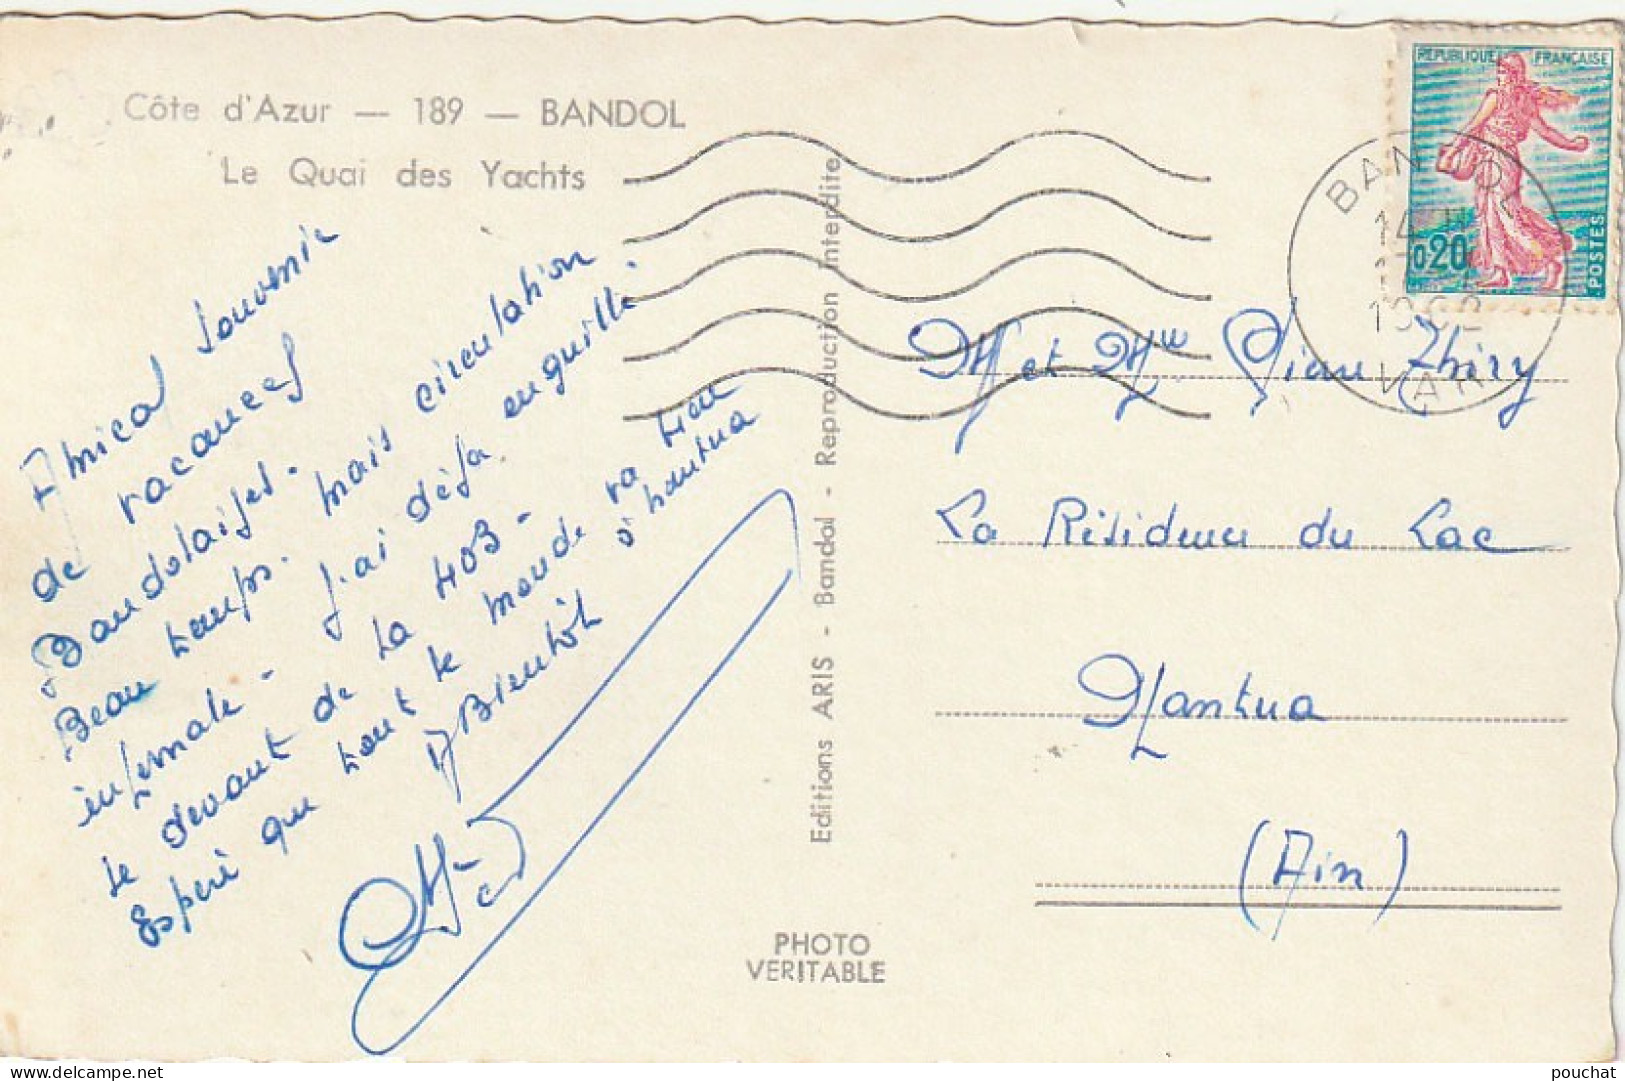 Côte d'Azur — 189 — BANDOL
Le Quai des Yachts
Amical souvenir
de vacances
Bandolaises.
Beau temps. mais circulation
infernale - j'ai déjà enguillé
le devant de la 403 -
Espère que tout le monde va bien
à nantua
A Bientôt
Editions ARIS - Bandol - Reproduction interdite
PHOTO
VERITABLE
REPUBLIQUE FRANÇAISE
0,20
POSTES
BANDOL
14 H
VAR
M et Mme Pierre Thiry
La Résidence du Lac
Nantua
(Ain)
pouchat